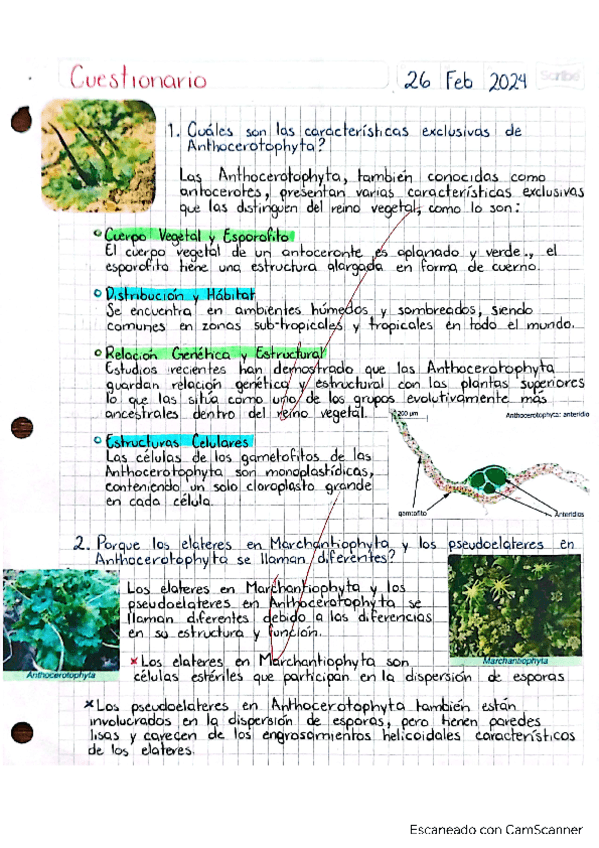 Cuestionario
26 Feb 2024
Scribe
1. Cuáles son las características exclusivas de
Anthocerotophyta?
Las Anthocerotophyta, también conocidas como
antocerotes, presentan varias características exclusivas
que las distinguen del reino vegetal, como lo son:
Cuerpo Vegetal y Esporofito
El cuerpo vegetal de un antoceronte es aplanado y verde., el
esporofito tiene una estructura alargada en forma de cuerno.
Distribución y Hábitat
Se encuentra en ambientes húmedos y sombreados, siendo
comunes en zonas sub-tropicales y tropicales en todo el mundo.
Relación Genética y Estructural
Estudios recientes han demostrado que las Anthocerotophyta
guardan relación genética y estructural con las plantas superiores
lo que las sitúa como uno de los grupos evolutivamente más
ancestrales dentro del reino vegetal.
200 µm
Anthocerotophyta: anteridio
Estructuras Celulares
Las células de los gametofitos de las
Anthocerotophyta son monoplastídicas,
conteniendo un solo cloroplasto grande
en cada célula.
gametofito
Anteridios
2. Porque los elateres en Marchantiophyta y los pseudoelateres en
Anthocerotophyta se llaman diferentes?
Los elateres en Marchantiophyta y los
pseudoelateres en Anthocerotophyta se
llaman diferentes debido a las diferencias
en su estructura y función.
Anthocerotophyta
Marchantiophyta
×Los elateres en Marchantiophyta son
células estériles que participan en la dispersión de esporas
×Los pseudoelateres en Anthocerotophyta también están
involucrados en la dispersión de esporas, pero tienen paredes
lisas y carecen de los engrosamientos helicoidales característicos
de los elateres.
Escaneado con CamScanner